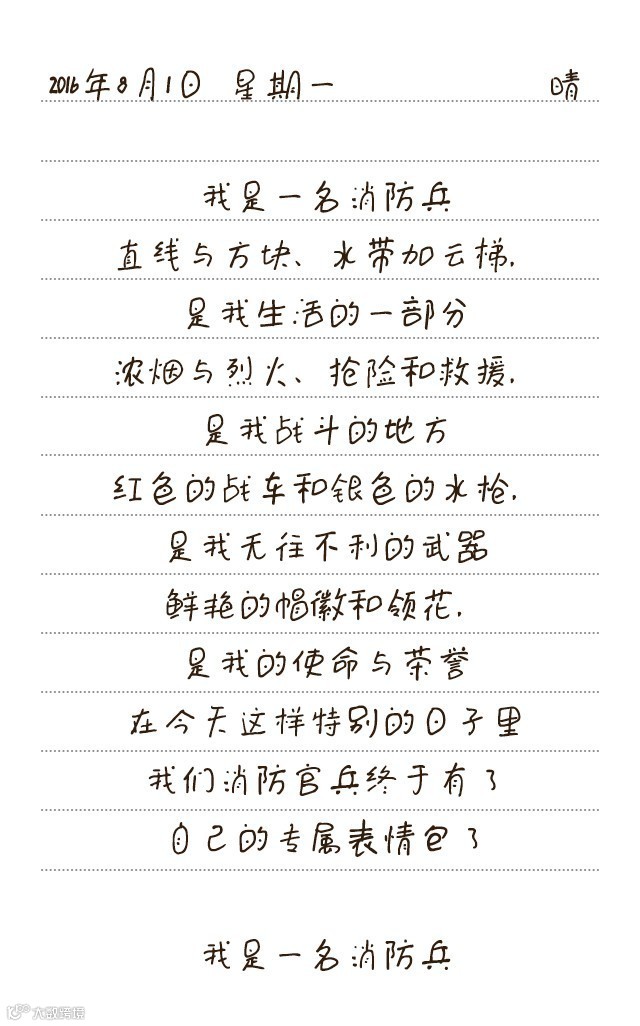 2016年8月1日 星期一 晴
我是一名消防兵
直线与方块、水带加云梯.
是我生活的一部分
浓烟与烈火、抢险和救援.
是我战斗的地方
红色的战车和银色的水枪.
是我无往不利的武器
鲜艳的帽徽和领花.
是我的使命与荣誉
在今天这样特别的日子里
我们消防官兵终于有了
自己的专属表情包了
我是一名消防兵
大数跨境